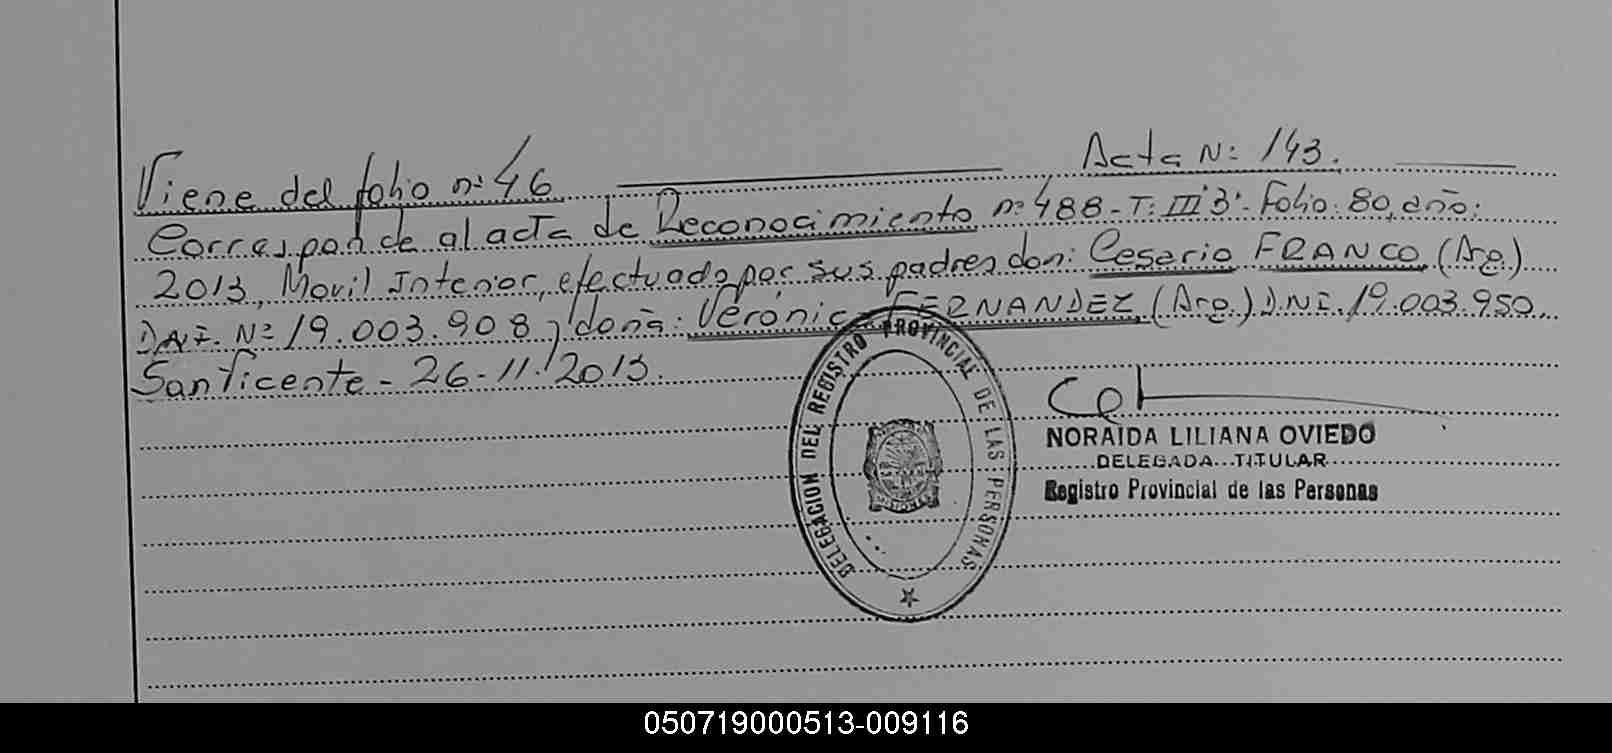 Viene del folio nº 46 Acta Nº 143.
Corresponde al acta de Reconocimiento nº 488 - T: III "B" - Folio: 80, año:
2013, Movil Interior, efectuado por sus padres don: Cesario FRANCO (Arg.)
D.N.I. Nº 19.003.908 y doña: Verónica FERNANDEZ, (Arg.) D.N.I. 19.003.950.
San Vicente - 26-11-2013.
DELEGACION DEL REGISTRO PROVINCIAL DE LAS PERSONAS
NORAIDA LILIANA OVIEDO
DELEGADA TITULAR
Registro Provincial de las Personas
050719000513-009116